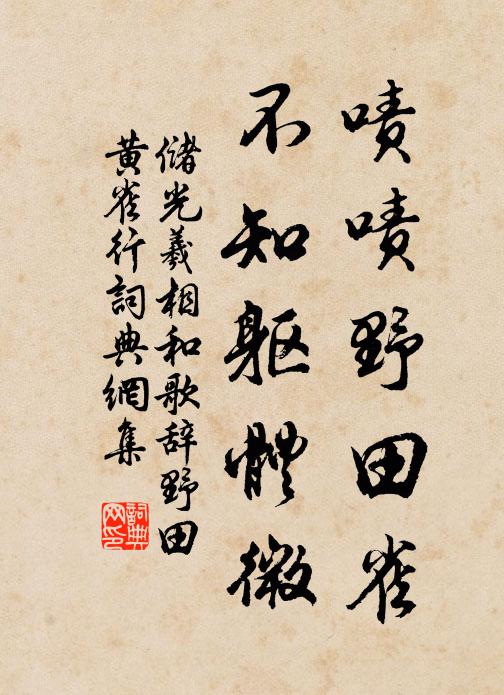 嘖嘖野田雀
不知軀體微
儲光羲相和歌辞野田
黄雀行詞典網集
詞典网印